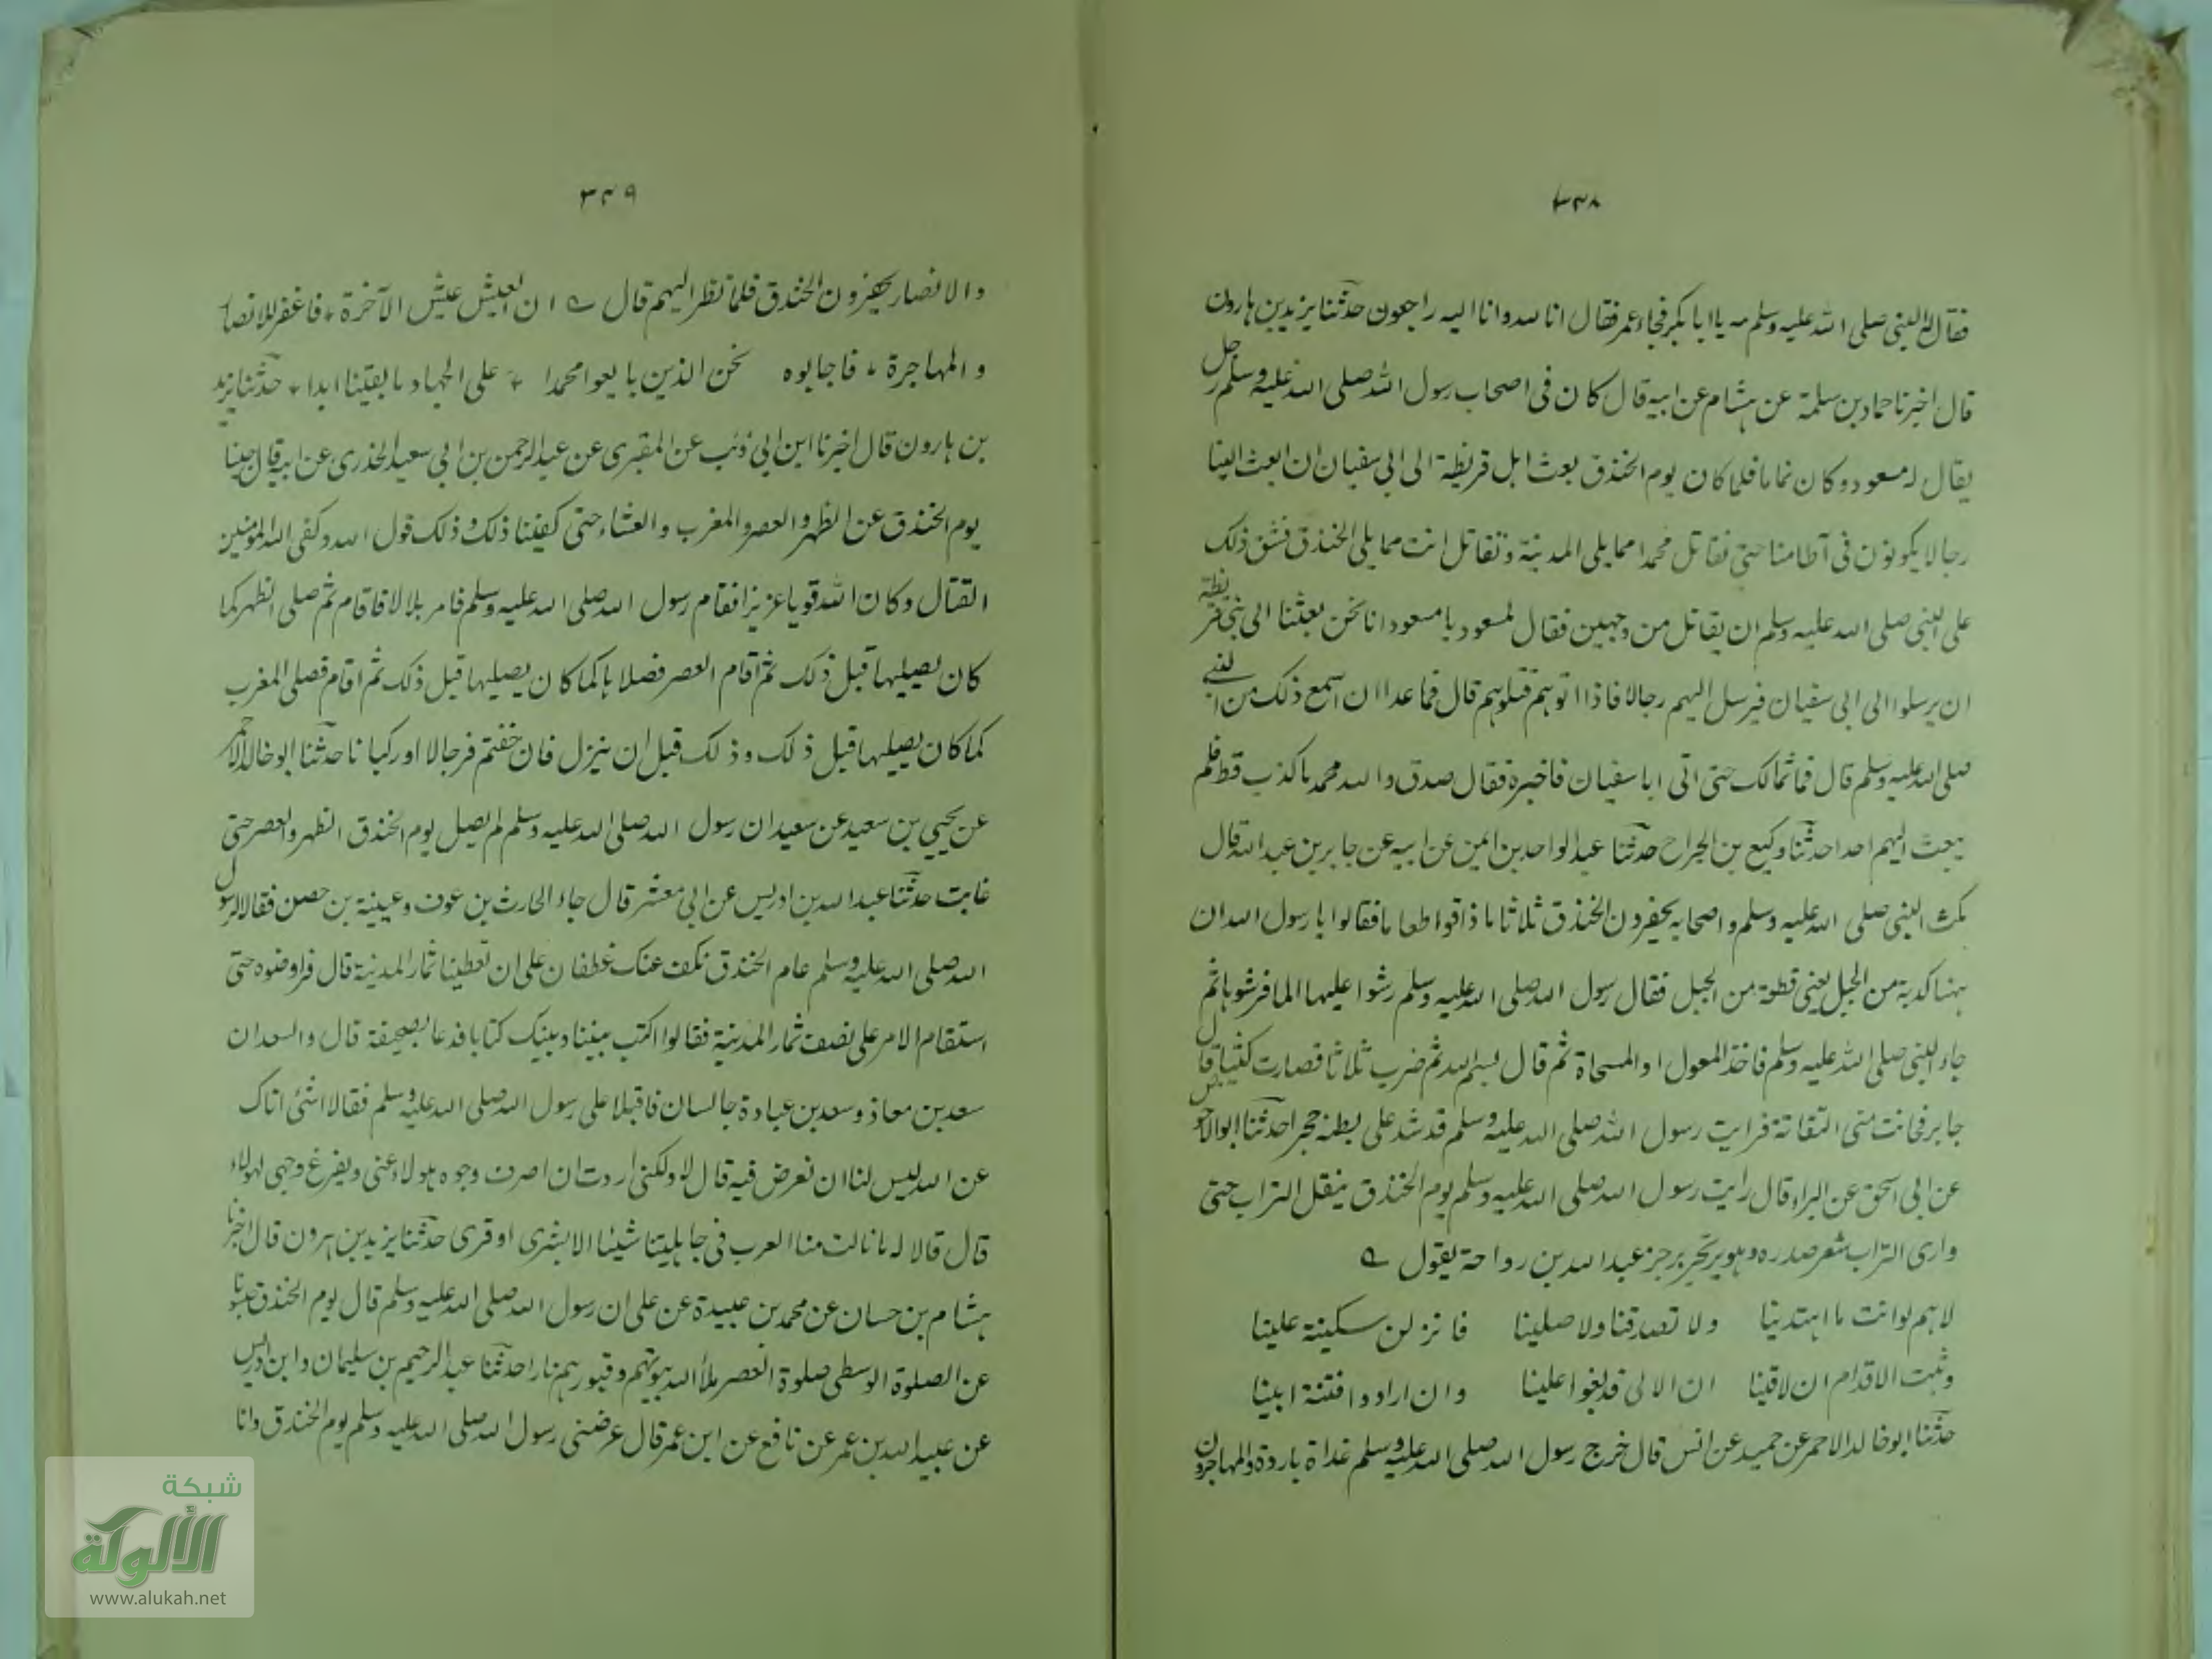 ٣٣٨
فقال له النبي صلى الله عليه وسلم مه يا ابا بكر فجاء عمر فقال انا لله وانا اليه راجعون حدثنا يزيد بن هارون
قال اخبرنا حماد بن سلمة عن هشام عن ابيه قال كان فى اصحاب رسول الله صلى الله عليه وسلم رجل
يقال له مسعود وكان نماما فلما كان يوم الخندق بعث اهل قريظة الى ابي سفيان ان ابعث الينا
رجالا يكونون فى آطامنا حتى نقاتل محمدا مما يلى المدينة وتقاتل انت مما يلى الخندق فشق ذلك
على النبى صلى الله عليه وسلم ان يقاتل من وجهين فقال لمسعود يا مسعود انا نحن بعثنا الى بنى قريظة
ان يرسلوا الى ابى سفيان فيرسل اليهم رجالا فاذا اتوهم قتلوهم قال فما عدا ان اسمع ذلك من النبى
صلى الله عليه وسلم قال فما تمالك حتى اتى ابا سفيان فاخبره فقال صدق والله محمد ما كذب قط فلم
يبعث اليهم احدا حدثنا وكيع بن الجراح حدثنا عبد الواحد بن ايمن عن ابيه عن جابر بن عبد الله قال
مكث النبى صلى الله عليه وسلم واصحابه يحفرون الخندق ثلاثا ما ذاقوا طعاما فقالوا يا رسول الله ان
هنا كدية من الجبل يعنى قطعة من الجبل فقال رسول الله صلى الله عليه وسلم رشوا عليها الما فرشوها ثم
جاء النبى صلى الله عليه وسلم فاخذ المعول او المسحاة ثم قال بسم الله ثم ضرب ثلاثا فصارت كثيبا قال
جابر فحانت منى التفاتة فرايت رسول الله صلى الله عليه وسلم قد شد على بطنه حجرا حدثنا ابو الاحوص
عن ابى اسحق عن البراء قال رايت رسول الله صلى الله عليه وسلم يوم الخندق ينقل التراب حتى
وارى التراب شعر صدره وهو يرتجز برجز عبد الله بن رواحة يقول
لاهم لو انت ما اهتدينا ولا تصدقنا ولا صلينا فانزلن سكينة علينا
وثبت الاقدام ان لاقينا ان الالى قد بغوا علينا وان ارادوا فتنة ابينا
حدثنا ابو خالد الاحمر عن حميد عن انس قال خرج رسول الله صلى الله عليه وسلم غداة باردة والمهاجرون
٣٣٩
والانصار يحفرون الخندق فلما نظر اليهم قال ان العيش عيش الآخرة فاغفر للانصار
والمهاجرة فاجابوه نحن الذين بايعوا محمدا على الجهاد ما بقينا ابدا حدثنا يزيد
بن هارون قال اخبرنا ابن ابي ذئب عن المقبرى عن عبد الرحمن بن ابي سعيد الخدرى عن ابيه قال حبسنا
يوم الخندق عن الظهر والعصر والمغرب والعشاء حتى كفينا ذلك وذلك قول الله وكفى الله المؤمنين
القتال وكان الله قويا عزيزا فقام رسول الله صلى الله عليه وسلم فامر بلالا فاقام ثم صلى الظهر كما
كان يصليها قبل ذلك ثم اقام العصر فصلاها كما كان يصليها قبل ذلك ثم اقام فصلى المغرب
كما كان يصليها قبل ذلك وذلك قبل ان ينزل فان خفتم فرجالا او ركبانا حدثنا ابو خالد الاحمر
عن يحيى بن سعيد عن سعيد ان رسول الله صلى الله عليه وسلم لم يصل يوم الخندق الظهر والعصر حتى
غابت حدثنا عبد الله بن ادريس عن ابي معشر قال جاء الحارث بن عوف وعيينة بن حصن فقالا لرسول
الله صلى الله عليه وسلم عام الخندق نكف عنك غطفان على ان تعطينا ثمار المدينة قال فراوضوه حتى
استقام الامر على نصف ثمار المدينة فقالوا اكتب بيننا وبينك كتابا فدعا بصحيفة قال والسعدان
سعد بن معاذ وسعد بن عبادة جالسان فاقبلا على رسول الله صلى الله عليه وسلم فقالا اشئ اتاك
عن الله ليس لنا ان نعرض فيه قال لا ولكنى اردت ان اصرف وجوه هولاء عنى ويفرغ وجهى لهولاء
قال قالا له ما نالت منا العرب فى جاهليتنا شيئا الا بشرى او قرى حدثنا يزيد بن هرون قال اخبرنا
هشام بن حسان عن محمد بن عبيدة عن على ان رسول الله صلى الله عليه وسلم قال يوم الخندق حبسونا
عن الصلوة الوسطى صلوة العصر ملأ الله بيوتهم وقبورهم نارا حدثنا عبد الرحيم بن سليمان وابن ادريس
عن عبيد الله بن عمر عن نافع عن ابن عمر قال عرضنى رسول الله صلى الله عليه وسلم يوم الخندق وانا
شبكة
الألوكة
www.alukah.net